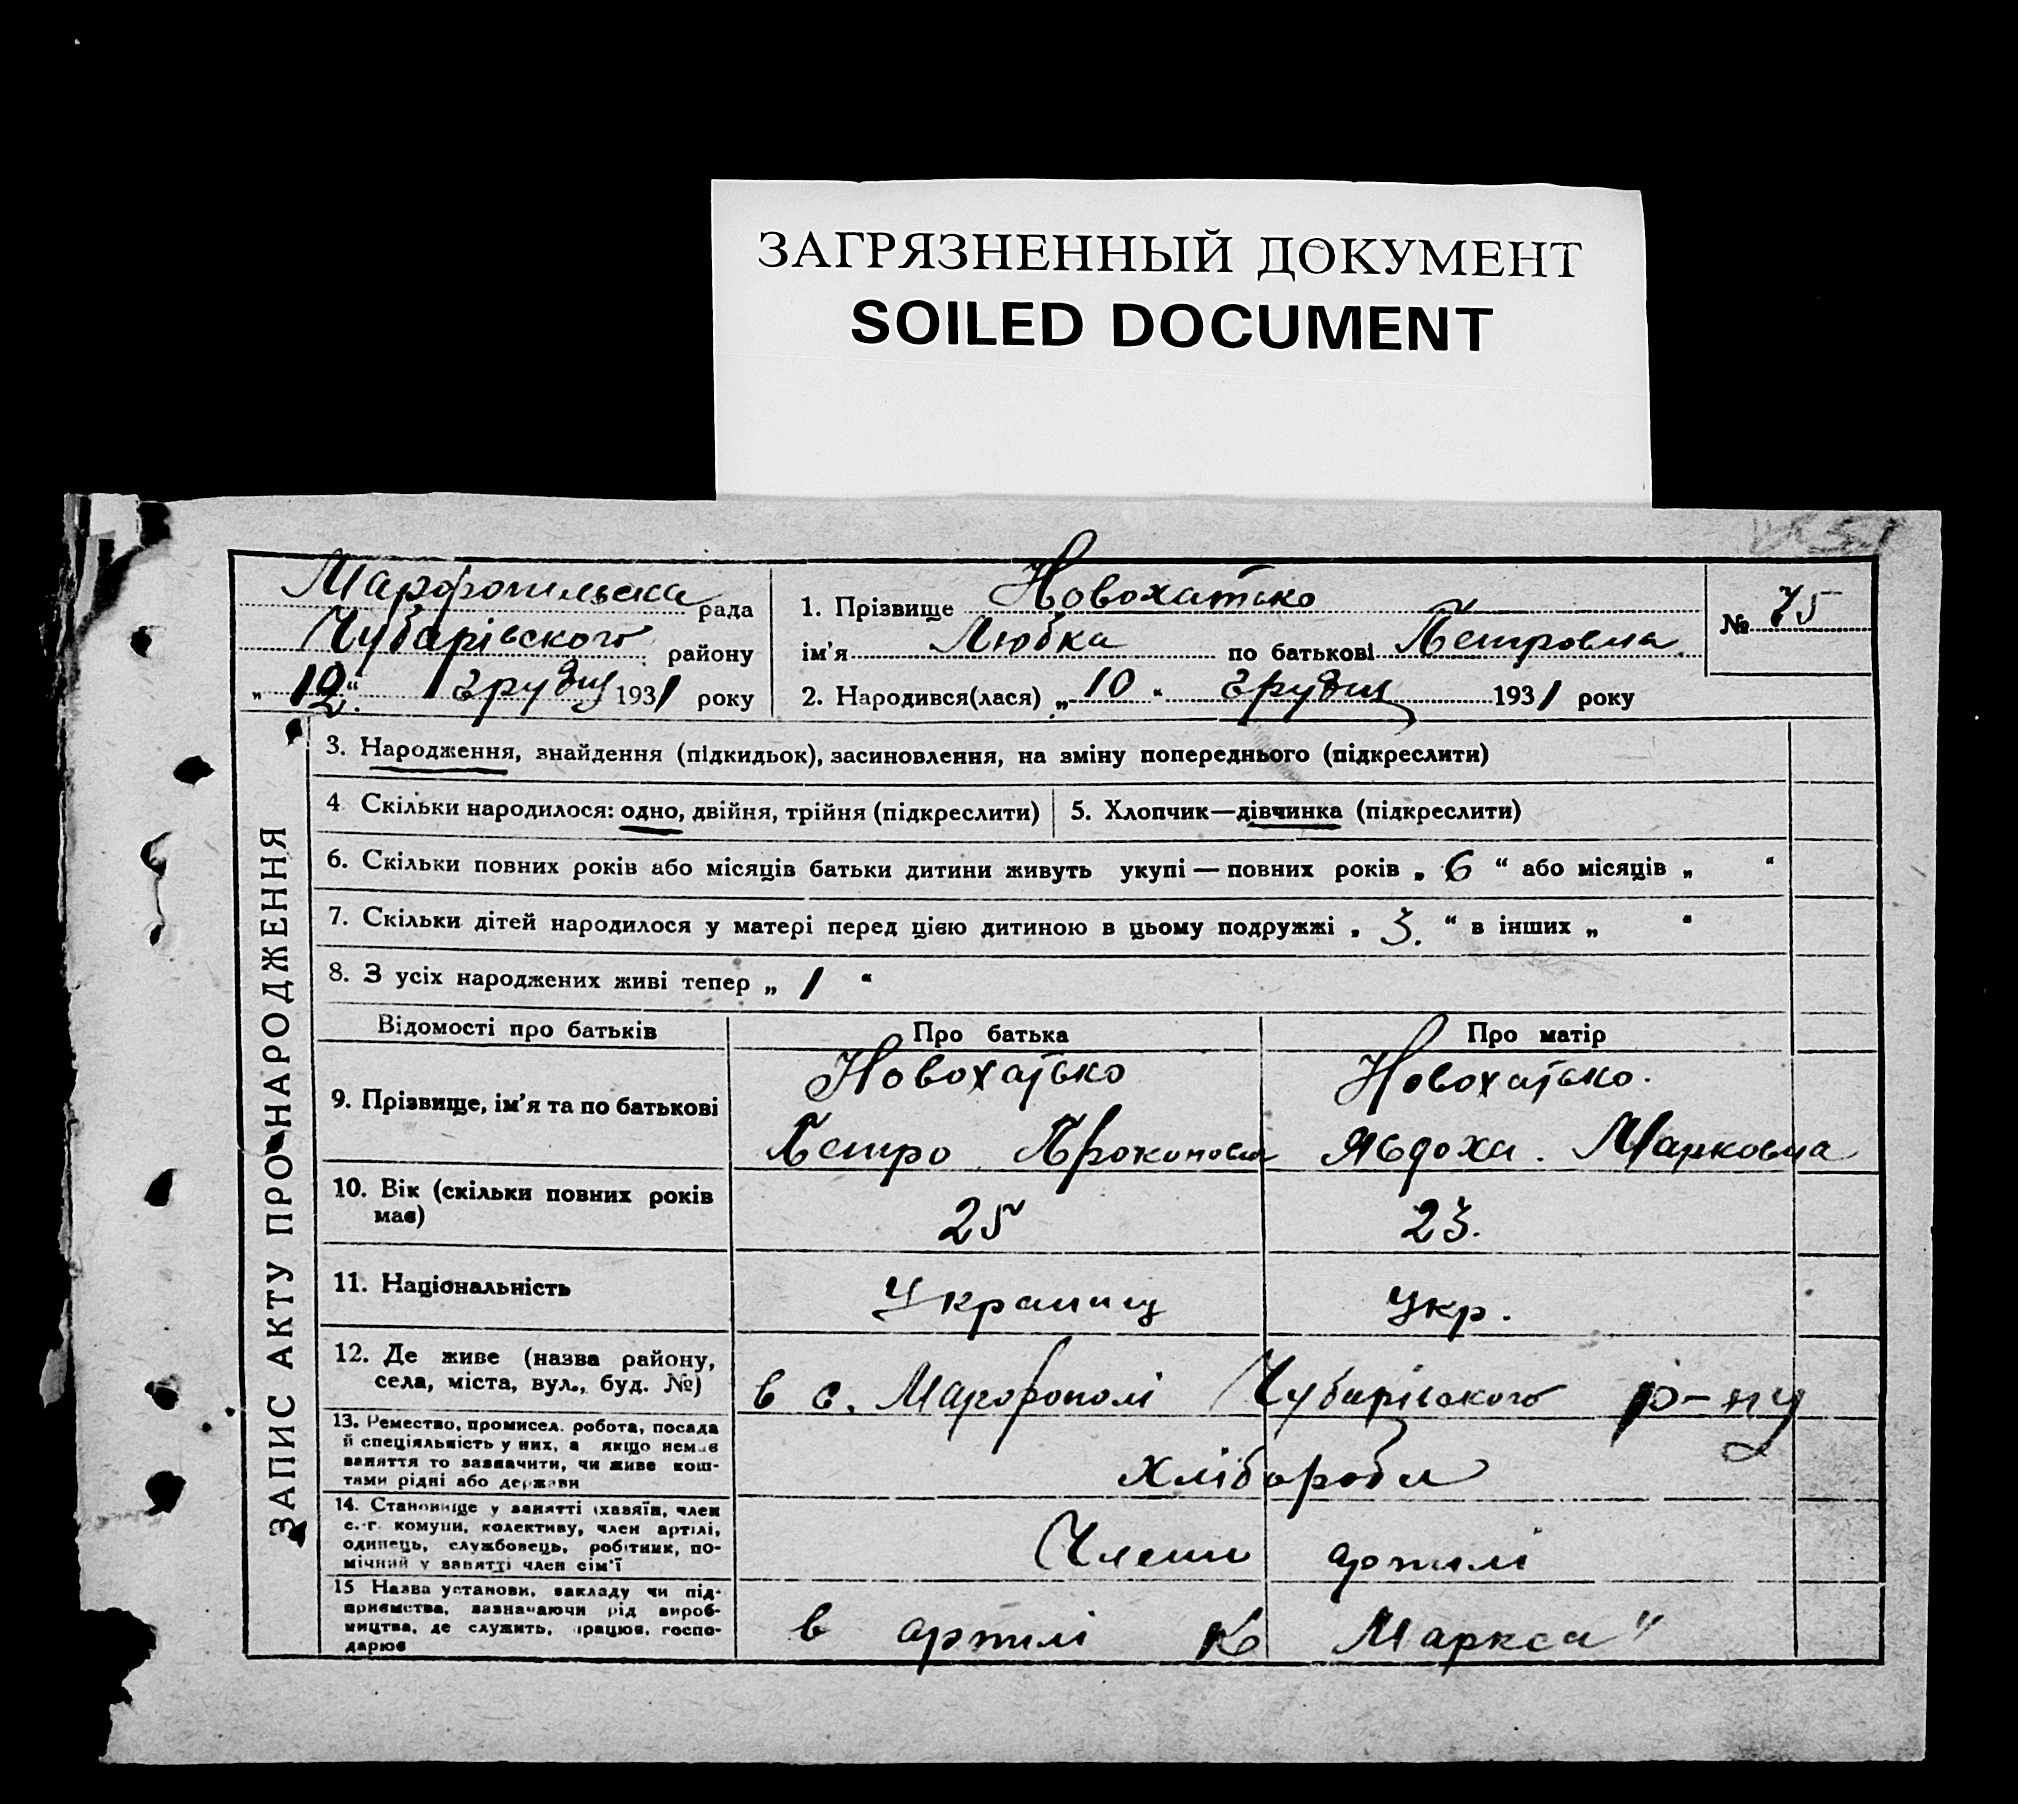 ЗАГРЯЗНЕННЫЙ ДОКУМЕНТ
SOILED DOCUMENT
Марфопильска рада
Чубарівского району
„ 12 “ грудня 1931 року
1. Прізвище Новохатько
ім'я Любка по батькові Петровна
2. Народився(лася) „ 10 “ грудня 1931 року
№ 75
ЗАПИС АКТУ ПРО НАРОДЖЕННЯ
3. Народження, знайдення (підкидьок), засиновлення, на зміну попереднього (підкреслити)
4 Скільки народилося: одно, двійня, трійня (підкреслити) 5. Хлопчик—дівчинка (підкреслити)
6. Скільки повних років або місяців батьки дитини живуть укупі — повних років „ 6 “ або місяців „ “
7. Скільки дітей народилося у матері перед цією дитиною в цьому подружжі „ 3. “ в інших „ “
8. З усіх народжених живі тепер „ 1 “
Відомості про батьків Про батька Про матір
9. Прізвище, ім'я та по батькові
Новохатько Новохатько.
Петро Прокопович Явдоха. Марковна
10. Вік (скільки повних років має) 25 23.
11. Національність Украинц Укр.
12. Де живе (назва району,
села, міста, вул., буд. №) в с. Марфополі Чубарівского р-ну
13. Ремество, промисел. робота, посада
й спеціяльність у них, а якщо немає
заняття то зазначити, чи живе кош-
тами рідні або держави
хлібороби
14. Становище у занятті (хазяїн, член
с.-г. комуни, колективу, член артілі,
одинець, службовець, робітник, по-
мічний у занятті член сім'ї
Члени артилі
15 Назва установи, закладу чи під-
приємства, зазначаючи рід вироб-
ництва, де служить, працює, госпо-
дарює
в артилі К Маркса"